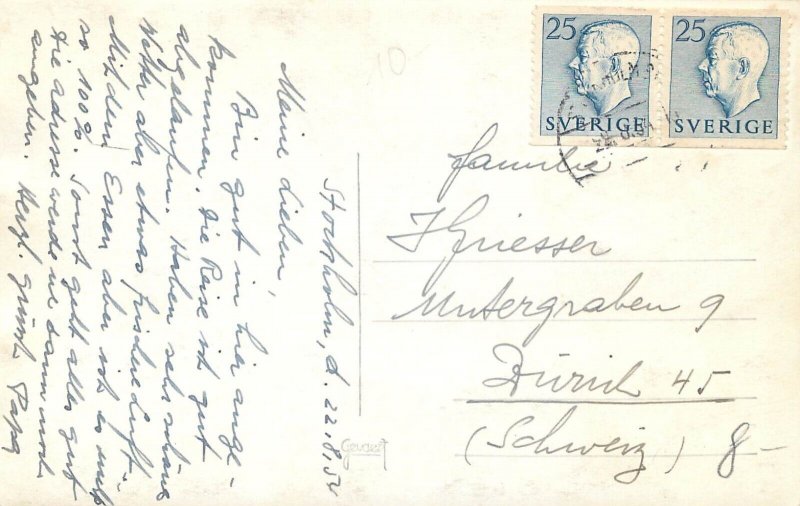 Stockholm, d. 22.8.54
Meine Lieben,
Bin gut in hier ange-
kommen. Die Reise ist gut
abgelaufen. Haben sehr schöne
Wetter aber etwas frische Luft.
Mit dem Essen aber ist es nicht
so 100%. Sonst geht alles gut
Die Adresse werde ich dann noch
angeben. Herzl. Grüsse Papa
25
SVERIGE
25
SVERIGE
Familie
Griesser
Untergraben 9
Zürich 45
(Schweiz) 8-
Gevaert